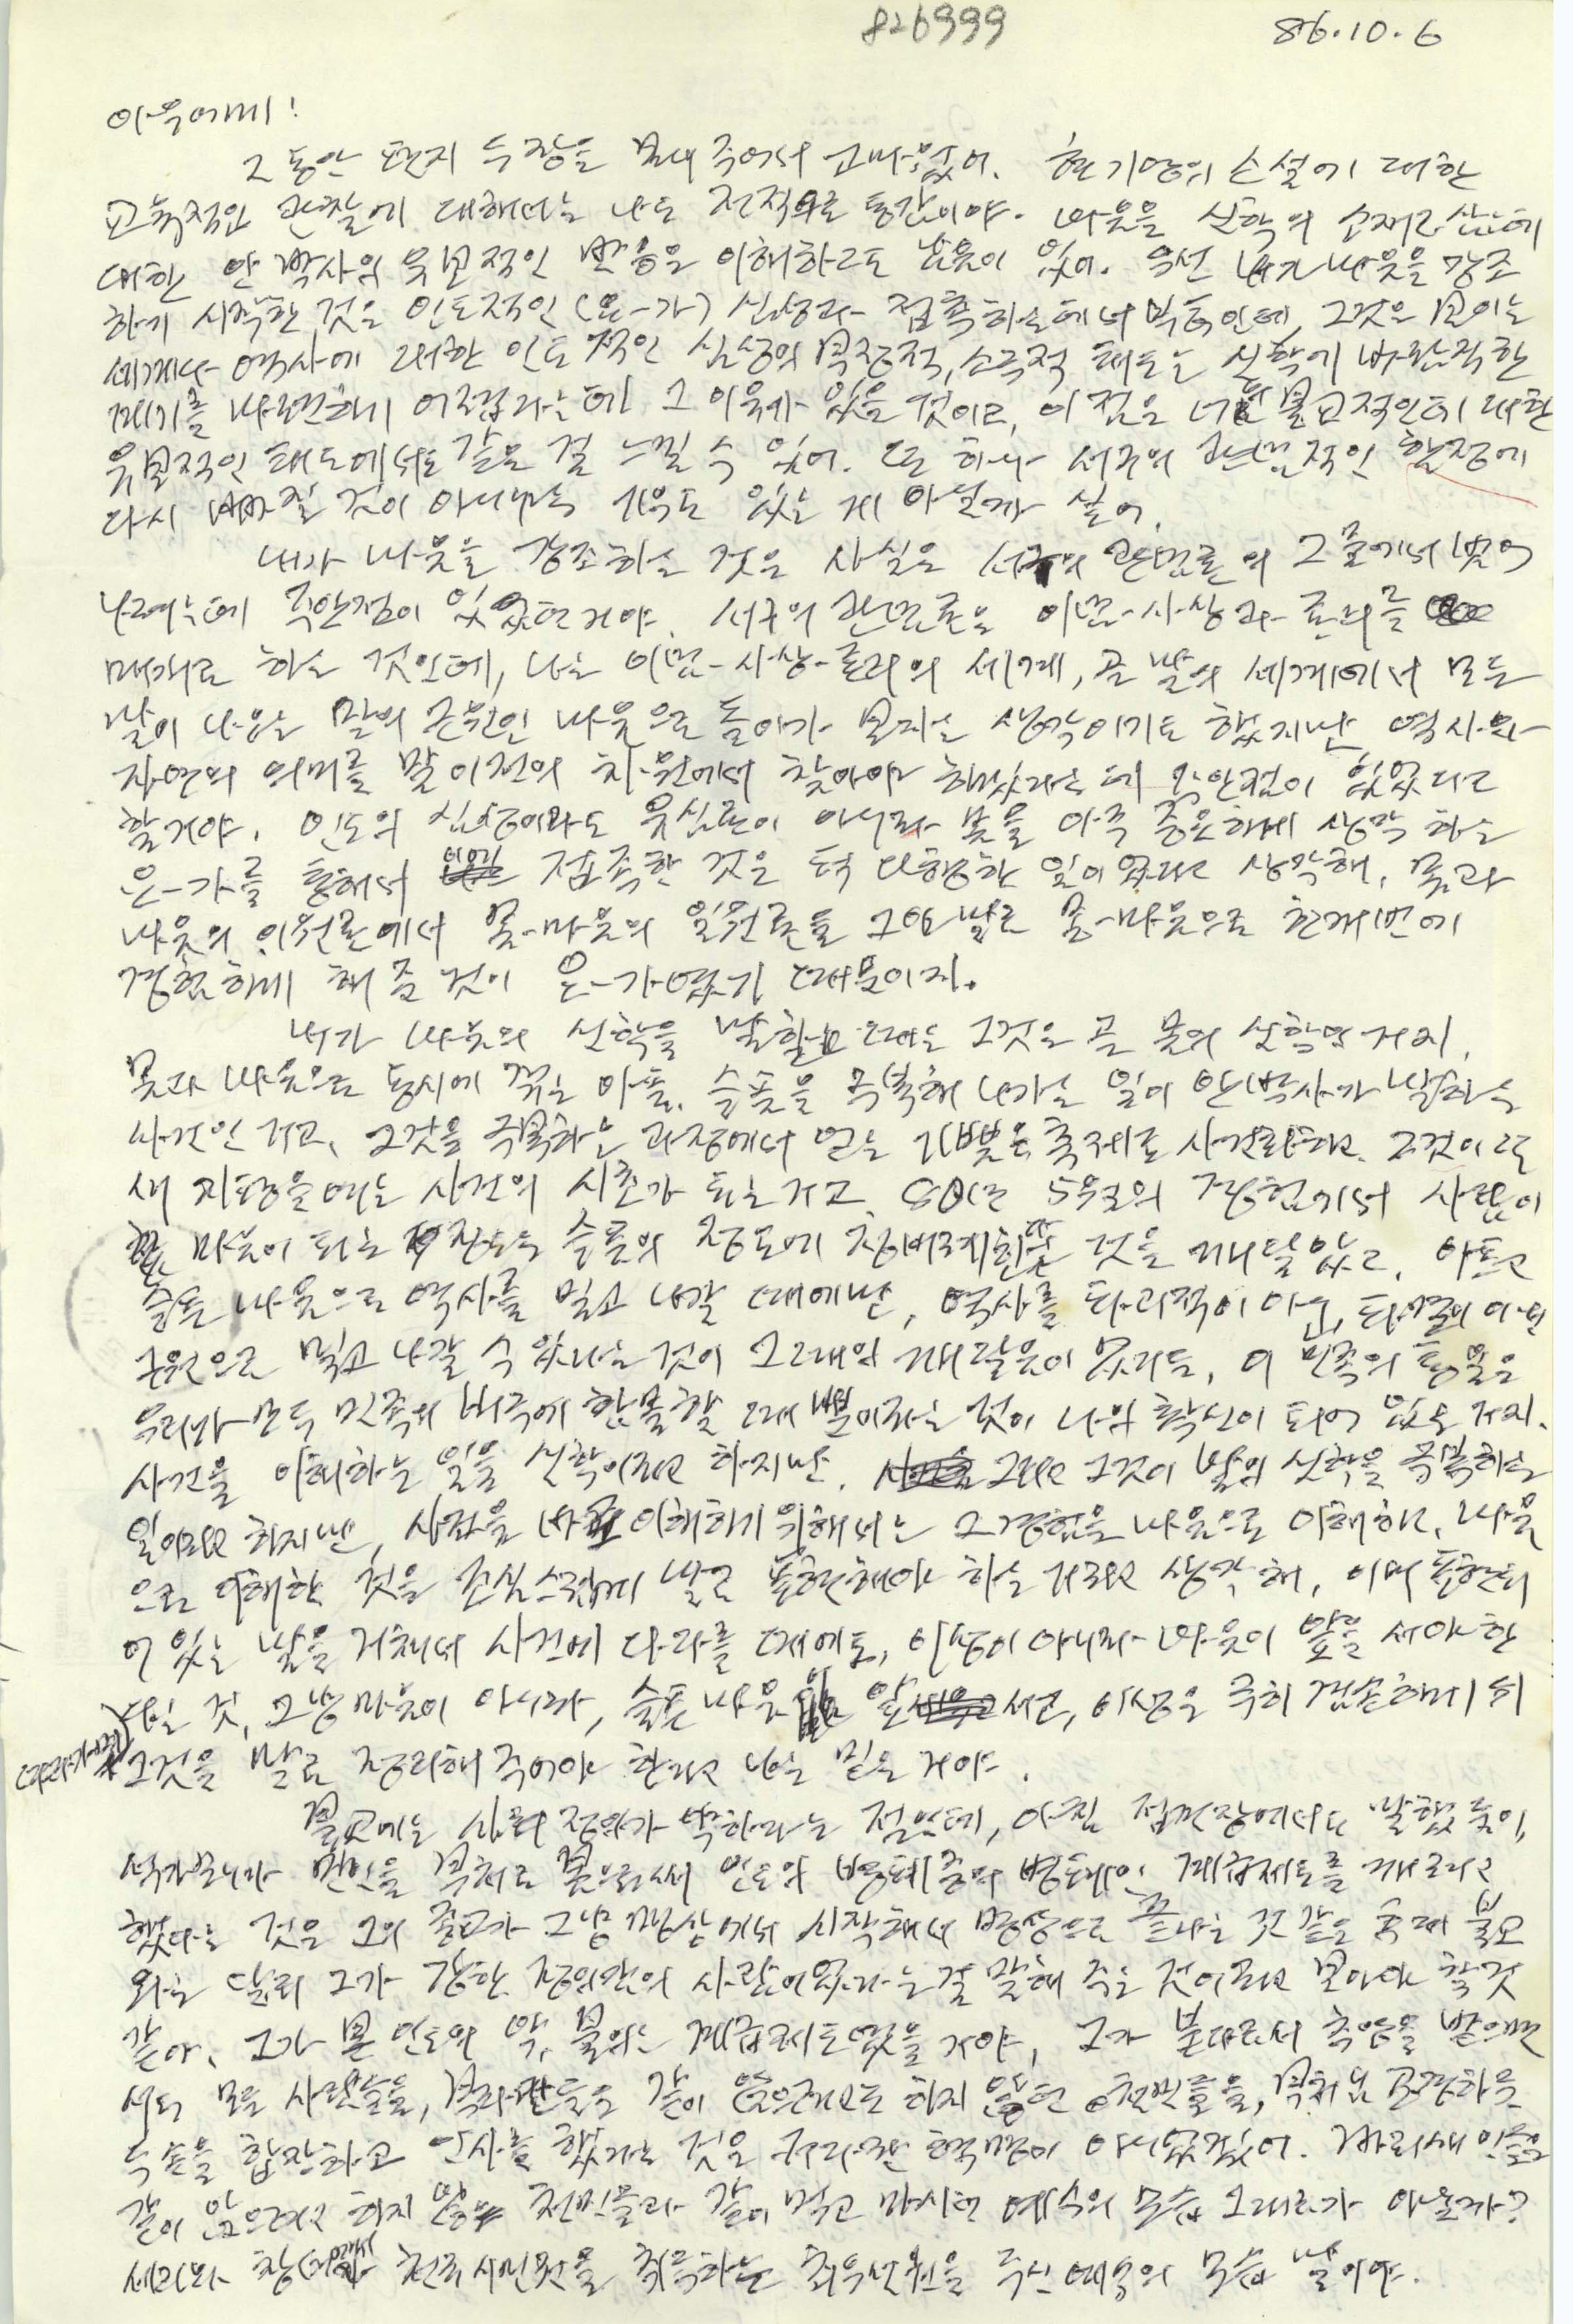 826999
86.10.6
아우에게!
그 동안 편지 두 장을 보내 주어서 고마웠어. 현기영의 소설에 대한
교육적인 관찰에 대해서는 나도 전적으로 동감이야. 마음을 신학의 소재로 삼는데
대한 안 박사의 유보적인 반응을 이해하고도 남음이 있어. 우선 내가 마음을 강조
하기 시작한 것은 인도적인 (요-가) 심성과 접촉하는데서 부터인데, 그것은 보이는
세계나 역사에 대한 인도적인 심성의 부정적, 소극적 태도는 신학에 바람직한
계기를 마련하기 어렵다는데 그 이유가 있을 것이고, 이 점은 불교적인데 대한
유보적인 태도에서도 같은 걸 느낄 수 있어. 또 하나 서구의 관념적인 함정에
다시 빠질 것이 아니냐는 기우도 있는 게 아닐까 싶어.
내가 마음을 강조하는 것은 사실은 서구의 관념론의 그물에서 벗어
나려는데 주안점이 있었던거야. 서구의 관념론은 이념-사상과 논리를
매개로 하는 것인데, 나는 이념-사상-논리의 세계, 곧 말의 세계에서 모든
말이 나오는 말의 근원인 마음으로 돌아가 보자는 생각이기도 했지만, 역사와
자연의 의미를 말 이전의 차원에서 찾아야 하겠다는데 주안점이 있었다고
할거야. 인도의 심성이라도 유심론이 아니라 몸을 아주 중요하게 생각하는
요-가를 통해서 접촉한 것은 퍽 다행한 일이었다고 생각해. 몸과
마음의 이원론에서 몸-마음의 일원론을 그야말로 몸-마음으로 한꺼번에
경험하게 해 준 것이 요-가였기 때문이지.
내가 마음의 신학을 말할 때는 그것은 곧 몸의 신학인 거지.
몸과 마음으로 동시에 겪는 아픔, 슬픔을 극복해 나가는 일이 안박사가 말하는
사건인 거고, 그것을 극복하는 과정에서 얻는 기쁨은 축제로 사건화하고, 그것이 또
새 지평을 여는 사건의 시초가 되는 거고. 80년 5월의 경험에서 사람이
마음이 되는 정도는 슬픔의 정도에 정비례한다는 것을 깨달았고, 아프고
슬픈 마음으로 역사를 밀고 나갈 때에만, 역사를 파괴적이 아닌, 타살이 아닌
구원으로 밀고 나갈 수 있다는 것이 그때의 깨달음이었거든. 이 민족의 통일은
우리가 모두 민족의 비극에 함몰할 때 뿐이라는 것이 나의 확신이 되어 있는 거지.
사건을 이해하는 일을 신학이라고 하지만, 그리고 그것이 말의 신학을 극복하는
일이라고 하지만, 사건을 바로 이해하기 위해서는 그 경험을 마음으로 이해하고, 마음
으로 이해한 것을 조심스럽게 말로 표현해야 하는 거라고 생각해. 이미 표현되
어 있는 말을 거쳐서 사건에 다다를 때에도, 이성이 아니라 마음이 앞을 서야 한
다는 것, 그냥 마음이 아니라, 슬픈 마음이 앞서고, 이성은 극히 겸손하게 뒤
(따라가면서) 그것을 말로 정리해 주어야 한다고 나는 믿는 거야.
불교에는 사회 정의가 박하다는 점인데, 아침 접견장에서도 말했듯이,
석가모니가 만민을 부처로 봄으로써 인도의 병폐 중의 병폐인 계급제도를 깨려고
했다는 것은 그의 종교가 그냥 명상에서 시작해서 명상으로 끝나는 것 같은 후대 불교
와는 달리 그가 강한 정의감의 사람이었다는걸 말해 주는 것이라고 보아야 할 것
같아. 그가 본 인도의 악, 불의는 계급제도였을 거야. 그가 붓다로서 추앙을 받으면
서도 모든 사람들을, 브라만들은 같이 앉으려고도 하지 않던 천민들을, 부처님 공경하듯
두 손을 합장하고 인사를 했다는 것은 굉장한 혁명이 아니었겠어. 바리새인들이
같이 앉으려고 하지 않는 천민들과 같이 먹고 마시던 예수의 모습 그대로가 아닐까?
세리와 창녀에게 천국시민권을 취득하는 최우선권을 주신 예수의 모습 말이야.